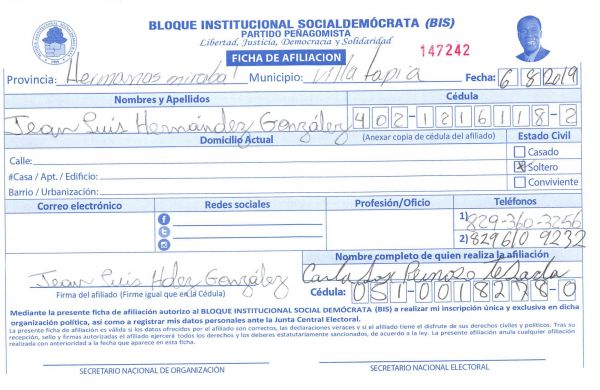 BLOQUE INSTITUCIONAL SOCIALDEMÓCRATA (BIS)
PARTIDO PEÑAGOMISTA
Libertad, Justicia, Democracia y Solidaridad
FICHA DE AFILIACION
147242
Provincia: Hermanas mirabal Municipio: Villa tapia Fecha: 6/8/2019
Nombres y Apellidos Cédula
Jean Luis Hernández González 402-1216118-2
Domicilio Actual (Anexar copia de cédula del afiliado) Estado Civil
Calle: Casado
#Casa / Apt. / Edificio: Soltero
Barrio / Urbanización: Conviviente
Correo electrónico Redes sociales Profesión/Oficio Teléfonos
1) 829-360-3256
2) 829 610 9232
Nombre completo de quien realiza la afiliación
Jean Luis Hdez González Carla
Firma del afiliado (Firme igual que en la Cédula) Cédula: 051-0018278-0
Mediante la presente ficha de afiliación autorizo al BLOQUE INSTITUCIONAL SOCIAL DEMÓCRATA (BIS) a realizar mi inscripción única y exclusiva en dicha
organización política, así como a registrar mis datos personales ante la Junta Central Electoral.
La presente ficha de afiliación es válida si los datos ofrecidos por el afiliado son correctos, las declaraciones veraces y si el afiliado tiene el disfrute de sus derechos civiles y políticos. Tras su
recepción, sello y firmas autorizadas el afiliado ejercerá todos los derechos y los deberes estatutariamente sancionados, de acuerdo a la ley. La presente afiliación anula cualquier afiliación
realizada con anterioridad a la fecha que aparece en esta ficha.
SECRETARIO NACIONAL DE ORGANIZACIÓN SECRETARIO NACIONAL ELECTORAL